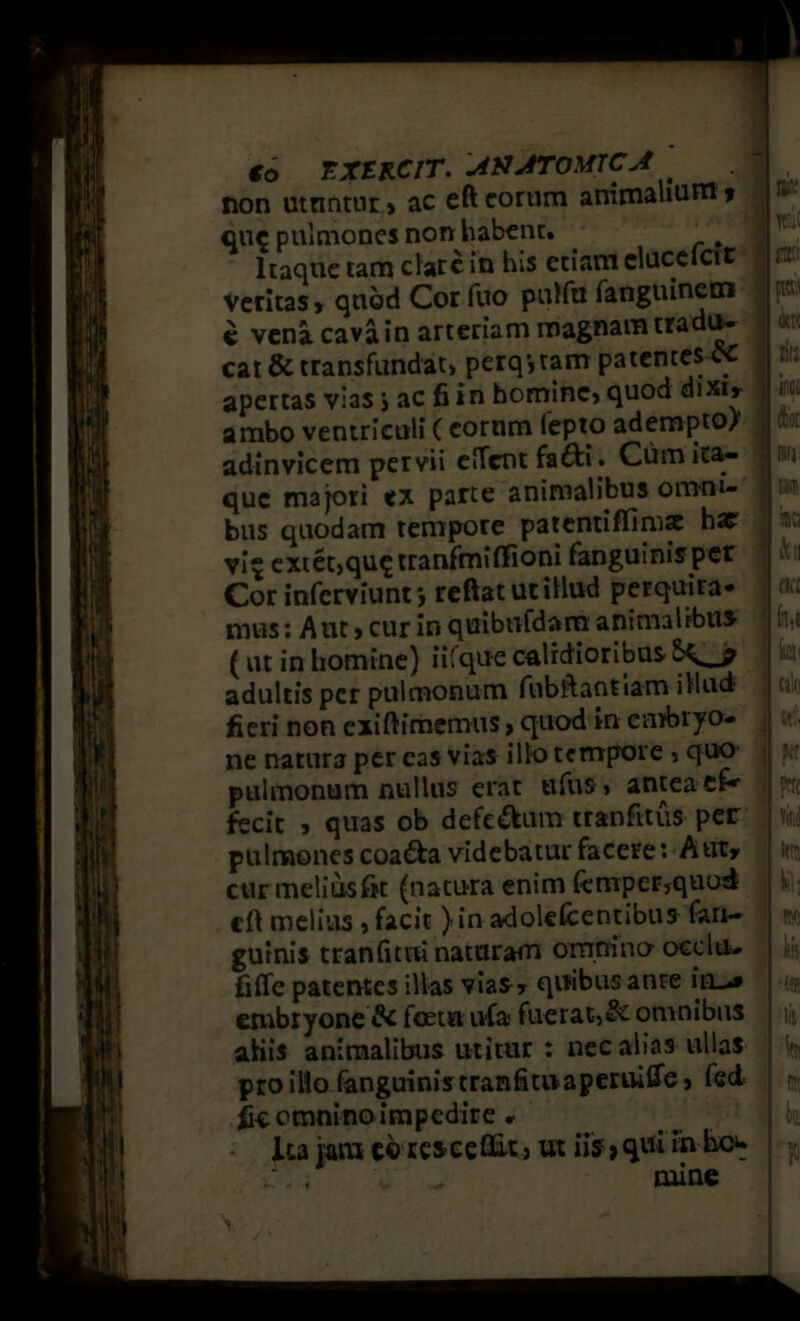 60 EXERCIT. ANATOMICA
non utuntur, ac est eorum animalium,
quę pulmones non habent.
Itaque tam clarè in his etiam elucescit
veritas, quòd Cor suo pulsu sanguinem
è venâ cavâ in arteriam magnam tradu-
cat & transfundat, perq; tam patentes &
apertas vias; ac si in homine, quod dixi,
ambo ventriculi (eorum septo adempto)
adinvicem pervii essent facti. Cùm ita-
que majori ex parte animalibus omni-
bus quodam tempore patentissimæ hæ
vię extét, quę transmissioni sanguinis per
Cor inserviunt; restat ut illud perquira-
mus: Aut, cur in quibusdam animalibus
(ut in homine) iisque calidioribus &
adultis per pulmonum substantiam illud
fieri non existimemus, quod in embryo-
ne natura per eas vias illo tempore, quo
pulmonum nullus erat usus, antea ef-
fecit, quas ob defectum transitûs per
pulmones coacta videbatur facere: Aut,
cur meliùs sit (natura enim semper, quod
est melius, facit) in adolescentibus san-
guinis transitui naturam omnino occlu-
sisse patentes illas vias, quibus ante in
embryone & fœtu usa fuerat, & omnibus
aliis animalibus utitur: nec alias ullas
pro illo sanguinis transitu aperuisse, sed
sic omnino impedire.
Ita jam eò res cessit, ut iis, qui in ho-
mine